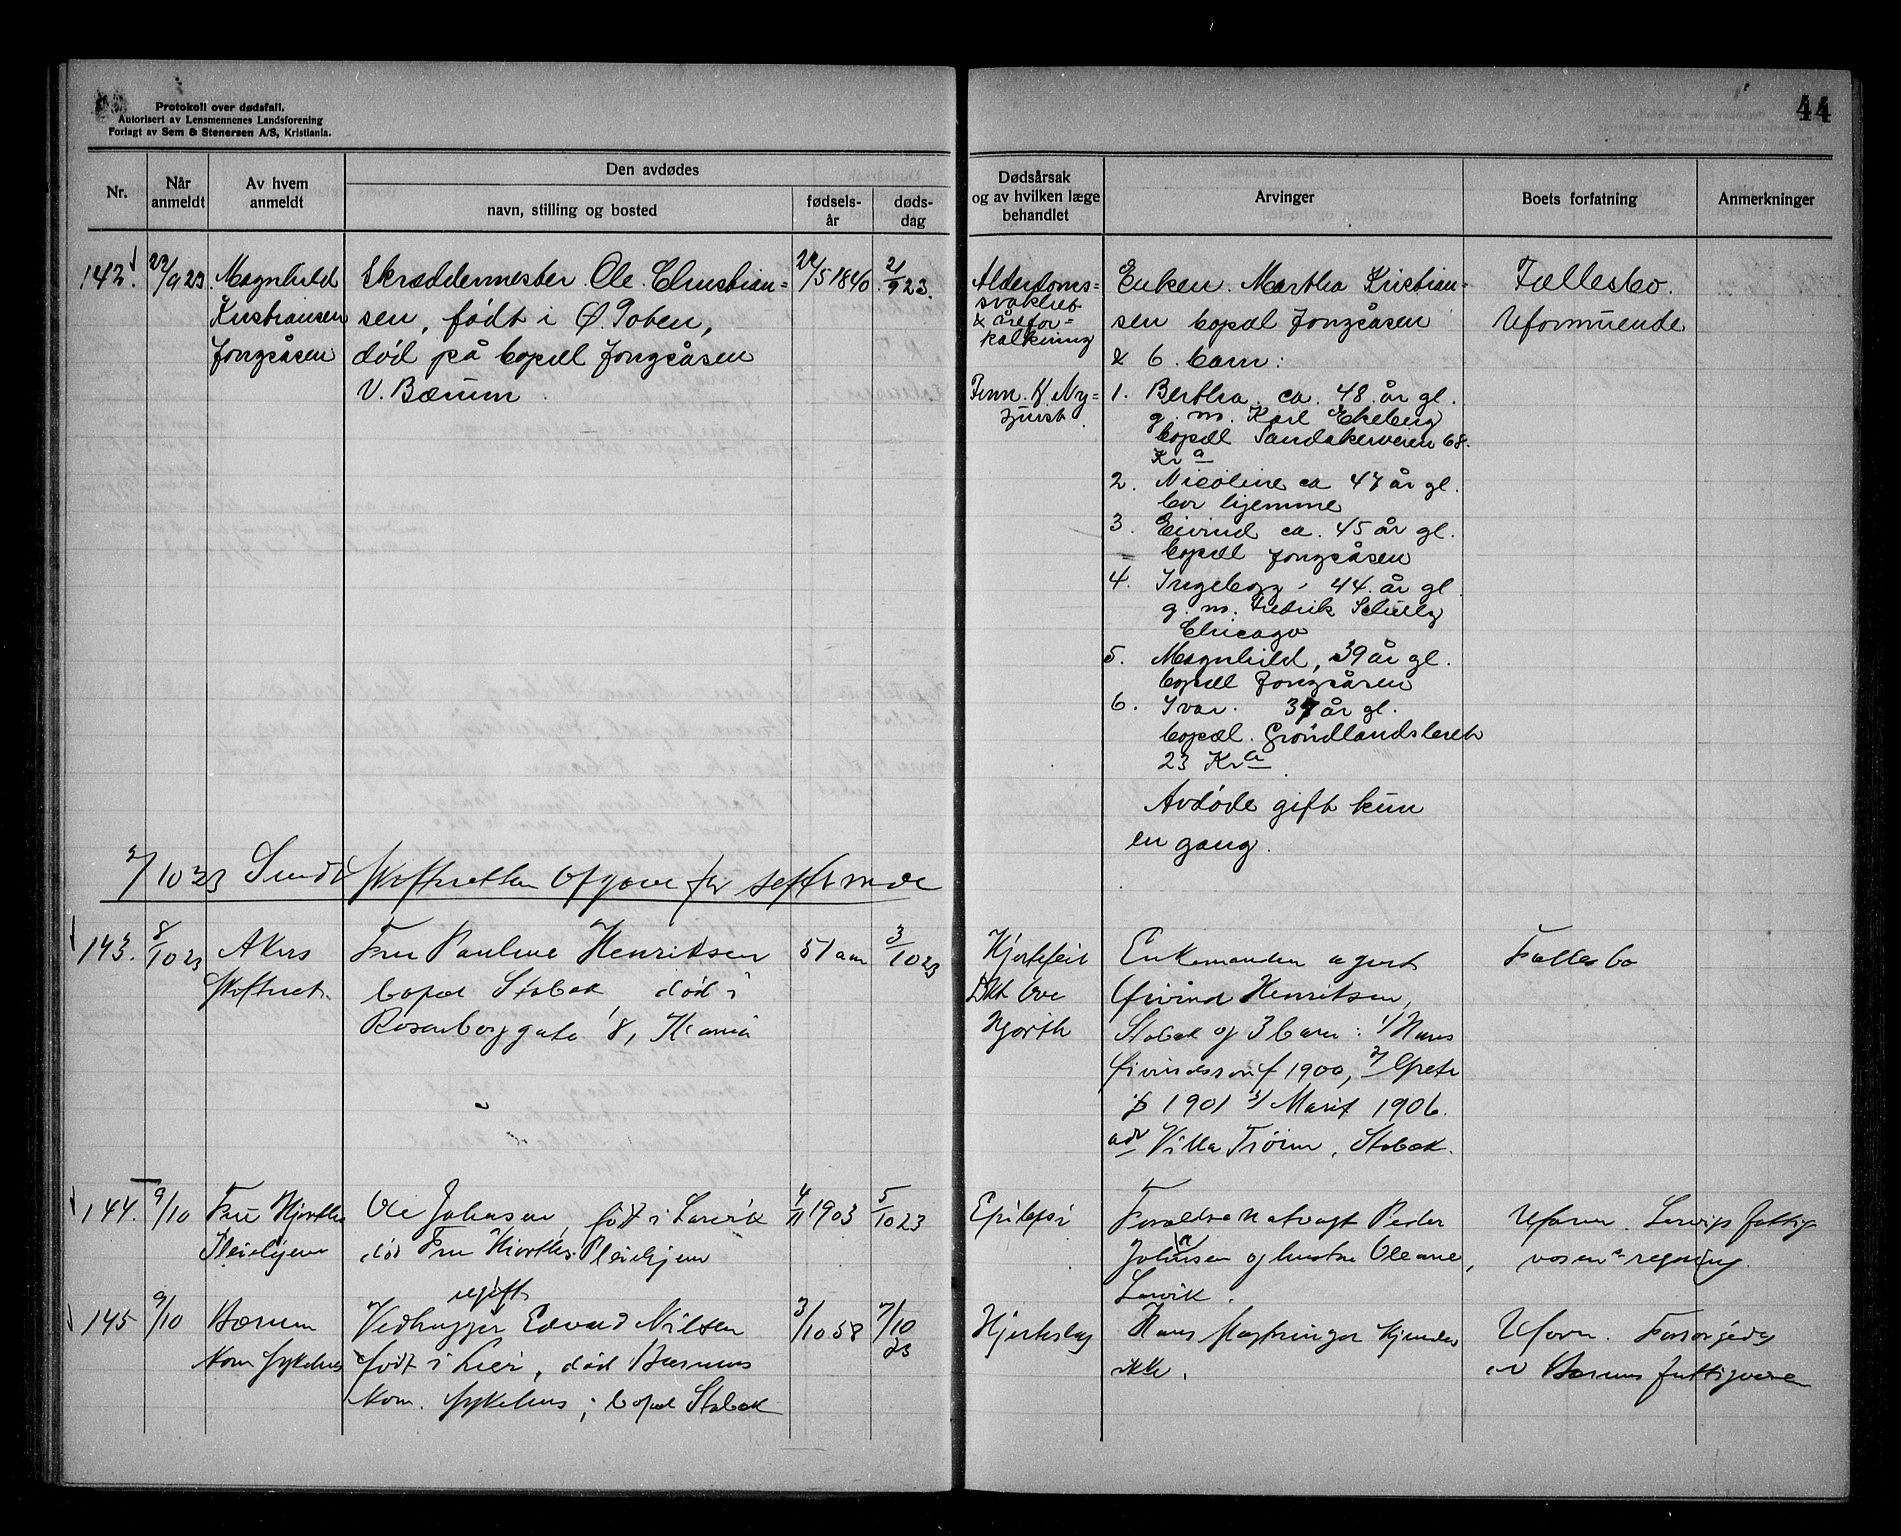 Protokoll over dødsfall.
Autorisert av Lensmennenes Landsforening
Forlagt av Sem & Stenersen A/S, Kristiania.
44
Nr.
Når anmeldt
Av hvem anmeldt
Den avdødes
navn, stilling og bosted
fødsels-år
døds-dag
Dødsårsak og av hvilken læge behandlet
Arvinger
Boets forfatning
Anmerkninger
142.
22/9 23
Magnhild
Kristiansen
Jongsåsen
Skræddermester Ole Christian=
sen, født i Ø. Toten,
død på bopæl Jongsåsen
V. Bærum.
5 1840
21/9 23.
Alderdoms=
svakhet
& årefor=
kalkning
H. Ny=
Enken Martha Kristian=
sen bopæl Jongsåsen
& 6 barn:
1. Bertha ca. 48 år gl.
g. m. Karl Ekeberg
bopæl Sandakerveien 68.
Kra
2. Nicoline ca 47 år gl.
bor hjemme
3. Eivind ca. 45 år gl.
bopæl Jongsåsen
4. Ingeborg, 44 år gl.
g. m. Fredrik
Chicago
5. Magnhild, 39 år gl.
bopæl Jongsåsen
6. Ivar. 37 år gl.
bopæl. Grøndlandsleret
23 Kra
Avdøde gift kun
en gang.
Fællesbo.
Uformuende
2/10 23 Sendt skifteretten opgave for septbr mde
143.
8/10 23
Akers
skifteret.
Fru Pauline Henriksen
bopæl Stabæk, død i
Rosenborggate 8, Krania
51 aar
3/10 23
Hjertefeil
Dkt Ove
Hjorth
Enkemanden agent
Øivind Henriksen,
Stabæk og 3 barn: 1/ Hans
Øivindsson f 1900, 2/ Grete
f 1901 3/ Marit 1906.
adr Villa Trøim, Stabæk.
Fællesbo
144.
9/10
Fru Hjorths
Pleiehjem
Ole Johnsen, født i Larvik
død Fru Hjorths Pleiehjem
4/11 1903
5/10 23
Epilepsi
Forældre Natvagt Peder
Johnsen og hustru Oleane,
Larvik.
Uform. Larviks fattig
vesens regning.
145
9/10
Bærum
Kom Sykehus
ugift
Vedhugger Edvard Nilsen
født i Lier, død Bærums
Kom. Sykehus; bopæl Stabæk
3/10 58
7/10 23
Hjerteslag
Hans slegtninger kjendes
ikke.
Uform. Forsørgedes
av Bærums fattigvesen